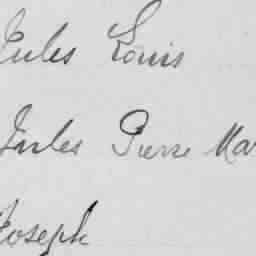 Jules Louis
Jules Pierre Mar
Joseph